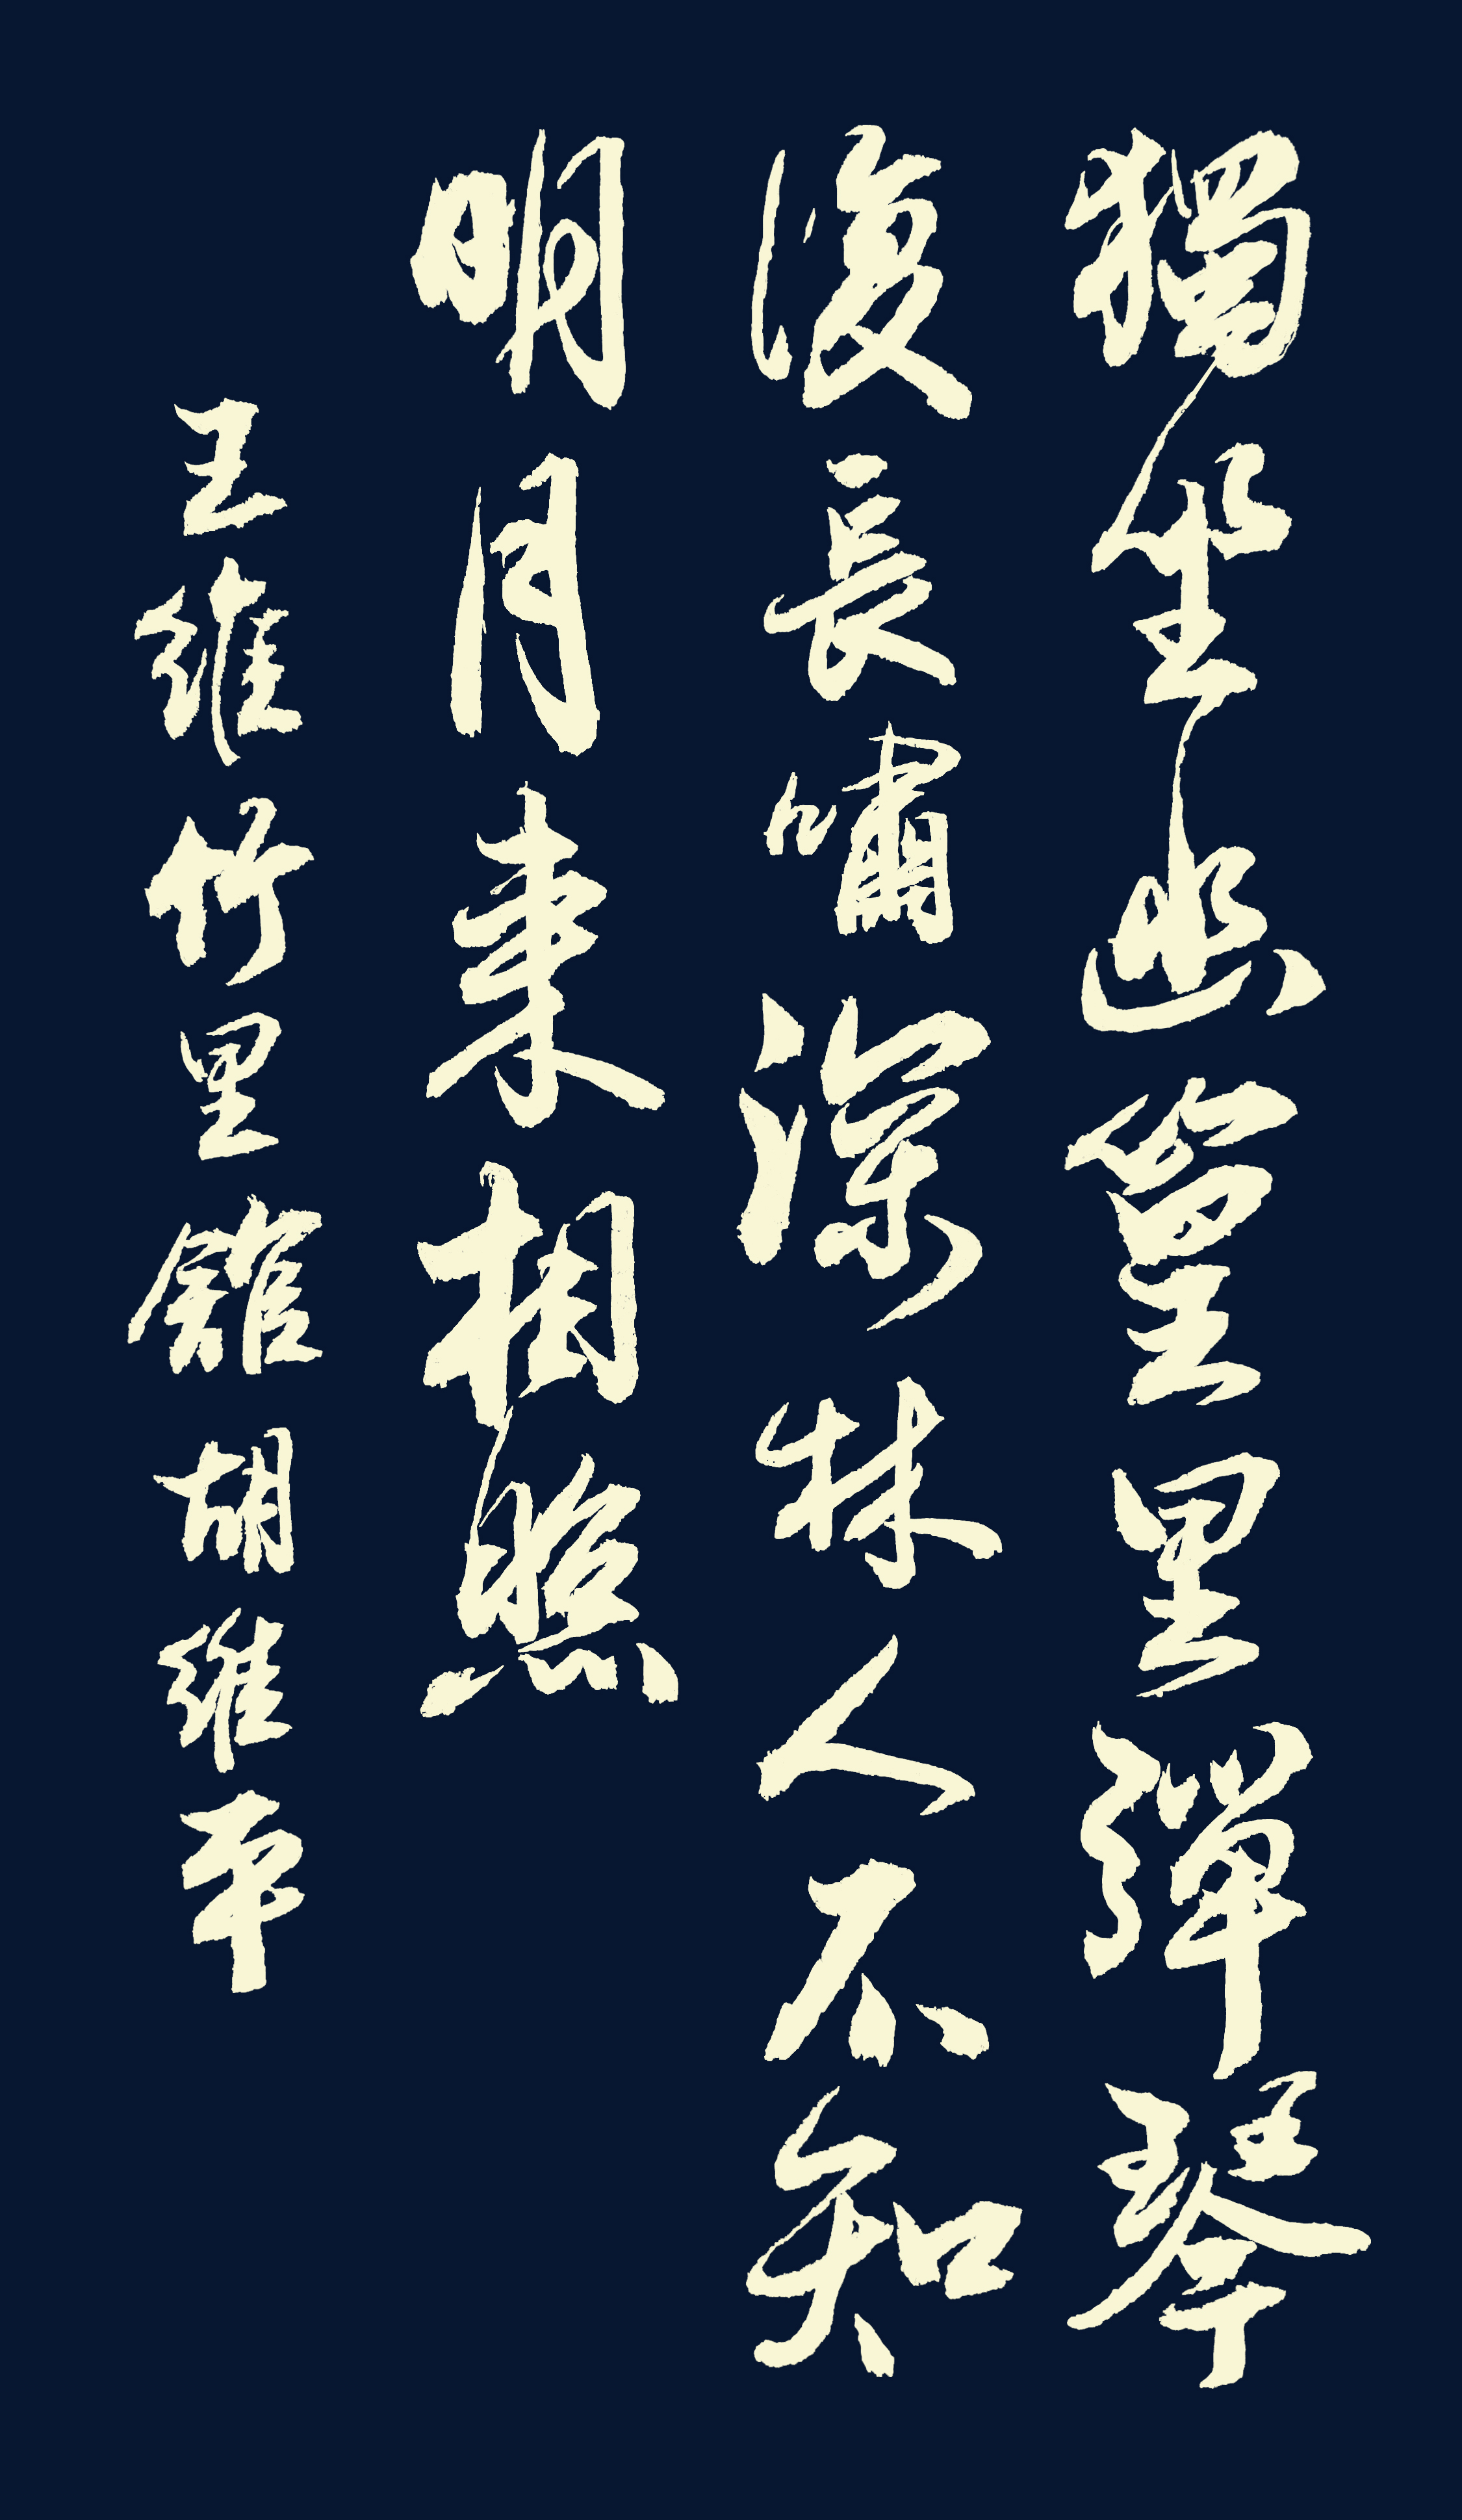 獨坐幽篁里彈琴
復長嘯深林人不知
明月來相照
王維竹里館胡維軍